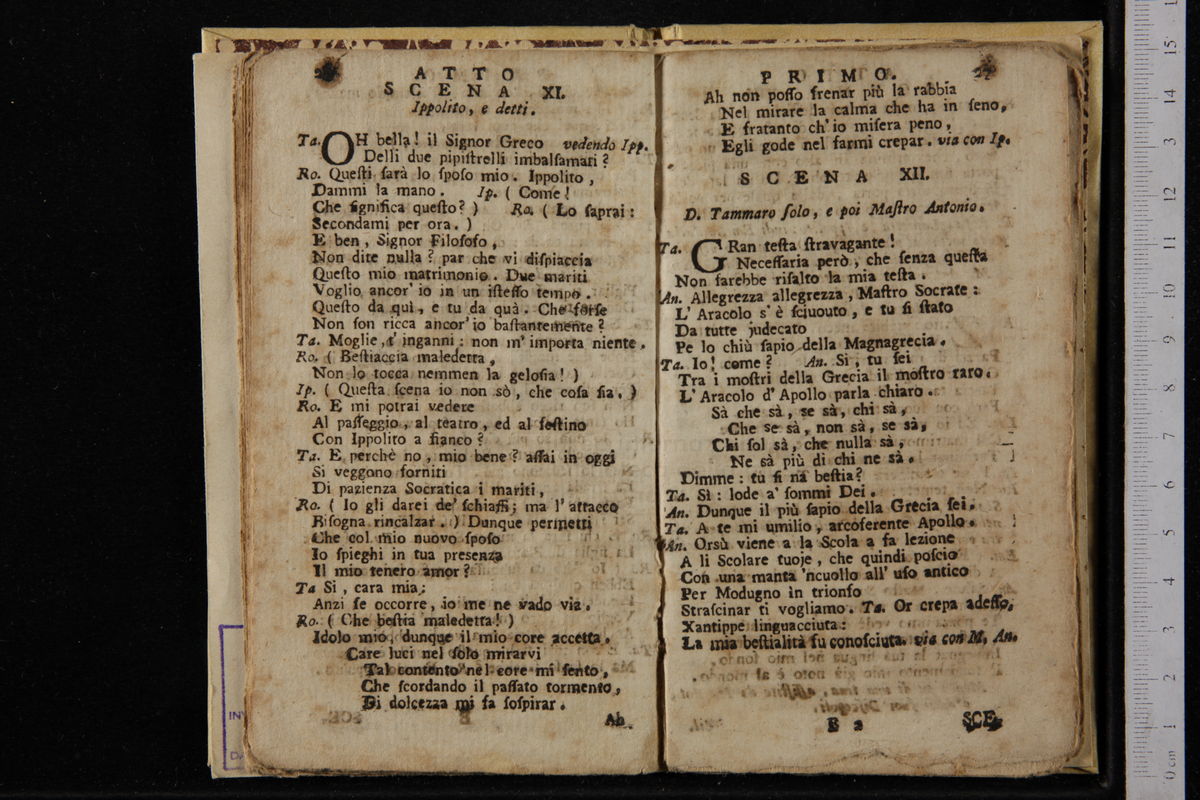 ATTO
SCENA XI.
Ippolito, e detti.
Ta. OH bella! il Signor Greco vedendo Ipp.
Delli due pipiſtrelli imbalſamari?
Ro. Queſti ſarà lo ſpoſo mio. Ippolito,
Dammi la mano. Ip. (Come!
Che ſignifica queſto?) Ro. (Lo ſaprai:
Secondami per ora.)
E ben, Signor Filoſofo,
Non dite nulla? par che vi diſpiaccia
Queſto mio matrimonio. Due mariti
Voglio ancor' io in un iſteſſo tempo.
Queſto da quì, e tu da quà. Che forſe
Non ſon ricca ancor' io baſtantemente?
Ta. Moglie, t' inganni: non m' importa niente.
Ro. (Beſtiaccia maledetta,
Non lo tocca nemmen la geloſia!)
Ip. (Queſta ſcena io non sò, che coſa ſia.)
Ro. E mi potrai vedere
Al paſſeggio, al teatro, ed al feſtino
Con Ippolito a fianco?
Ta. E perchè no, mio bene? aſſai in oggi
Si veggono forniti
Di pazienza Socratica i mariti,
Ro. (Io gli darei de' ſchiaffi; ma l' attacco
Biſogna rincalzar.) Dunque permetti
Che col mio nuovo ſpoſo
Io ſpieghi in tua presenza
Il mio tenero amor?
Ta Si, cara mia;
Anzi ſe occorre, io me ne vado via.
Ro. (Che beſtia maledetta!)
Idolo mio, dunque il mio core accetta.
Care luci nel ſolo mirarvi
Tal contento nel core mi ſento,
Che ſcordando il paſſato tormento,
Di dolcezza mi fa ſoſpirar.
Ah
PRIMO. 27
Ah non poſſo frenar più la rabbia
Nel mirare la calma che ha in ſeno,
E fratanto ch' io miſera peno,
Egli gode nel farmi crepar. via con Ip.
SCENA XII.
D. Tammaro ſolo, e poi Maſtro Antonio.
Ta. GRan teſta ſtravagante!
Neceſſaria però, che ſenza queſta
Non farebbe riſalto la mia teſta.
An. Allegrezza allegrezza, Maſtro Socrate:
L' Aracolo s' è ſciuouto, e tu ſi ſtato
Da tutte judecato
Pe lo chiù ſapio della Magnagrecia.
Ta. Io! come? An. Si, tu ſei
Tra i moſtri della Grecia il moſtro raro.
L' Aracolo d' Apollo parla chiaro.
Sà che sà, se sà, chi sà,
Che se sà, non sà, se sà,
Chi ſol sà, che nulla sà,
Ne sà più di chi ne sà.
Dimme: tu ſi na beſtia?
Ta. Sì: lode a' ſommi Dei.
An. Dunque il più ſapio della Grecia ſei.
Ta. A te mi umilio, arcoferente Apollo.
An. Orsù viene a la Scola a fa lezione
A li Scolare tuoje, che quindi poſcio
Con una manta 'ncuollo all' uſo antico
Per Modugno in trionfo
Straſcinar ti vogliamo. Ta. Or crepa adeſſo,
Xantippe linguacciuta:
La mia beſtialità fu conoſciuta. via con M. An.
B 2 SCE-